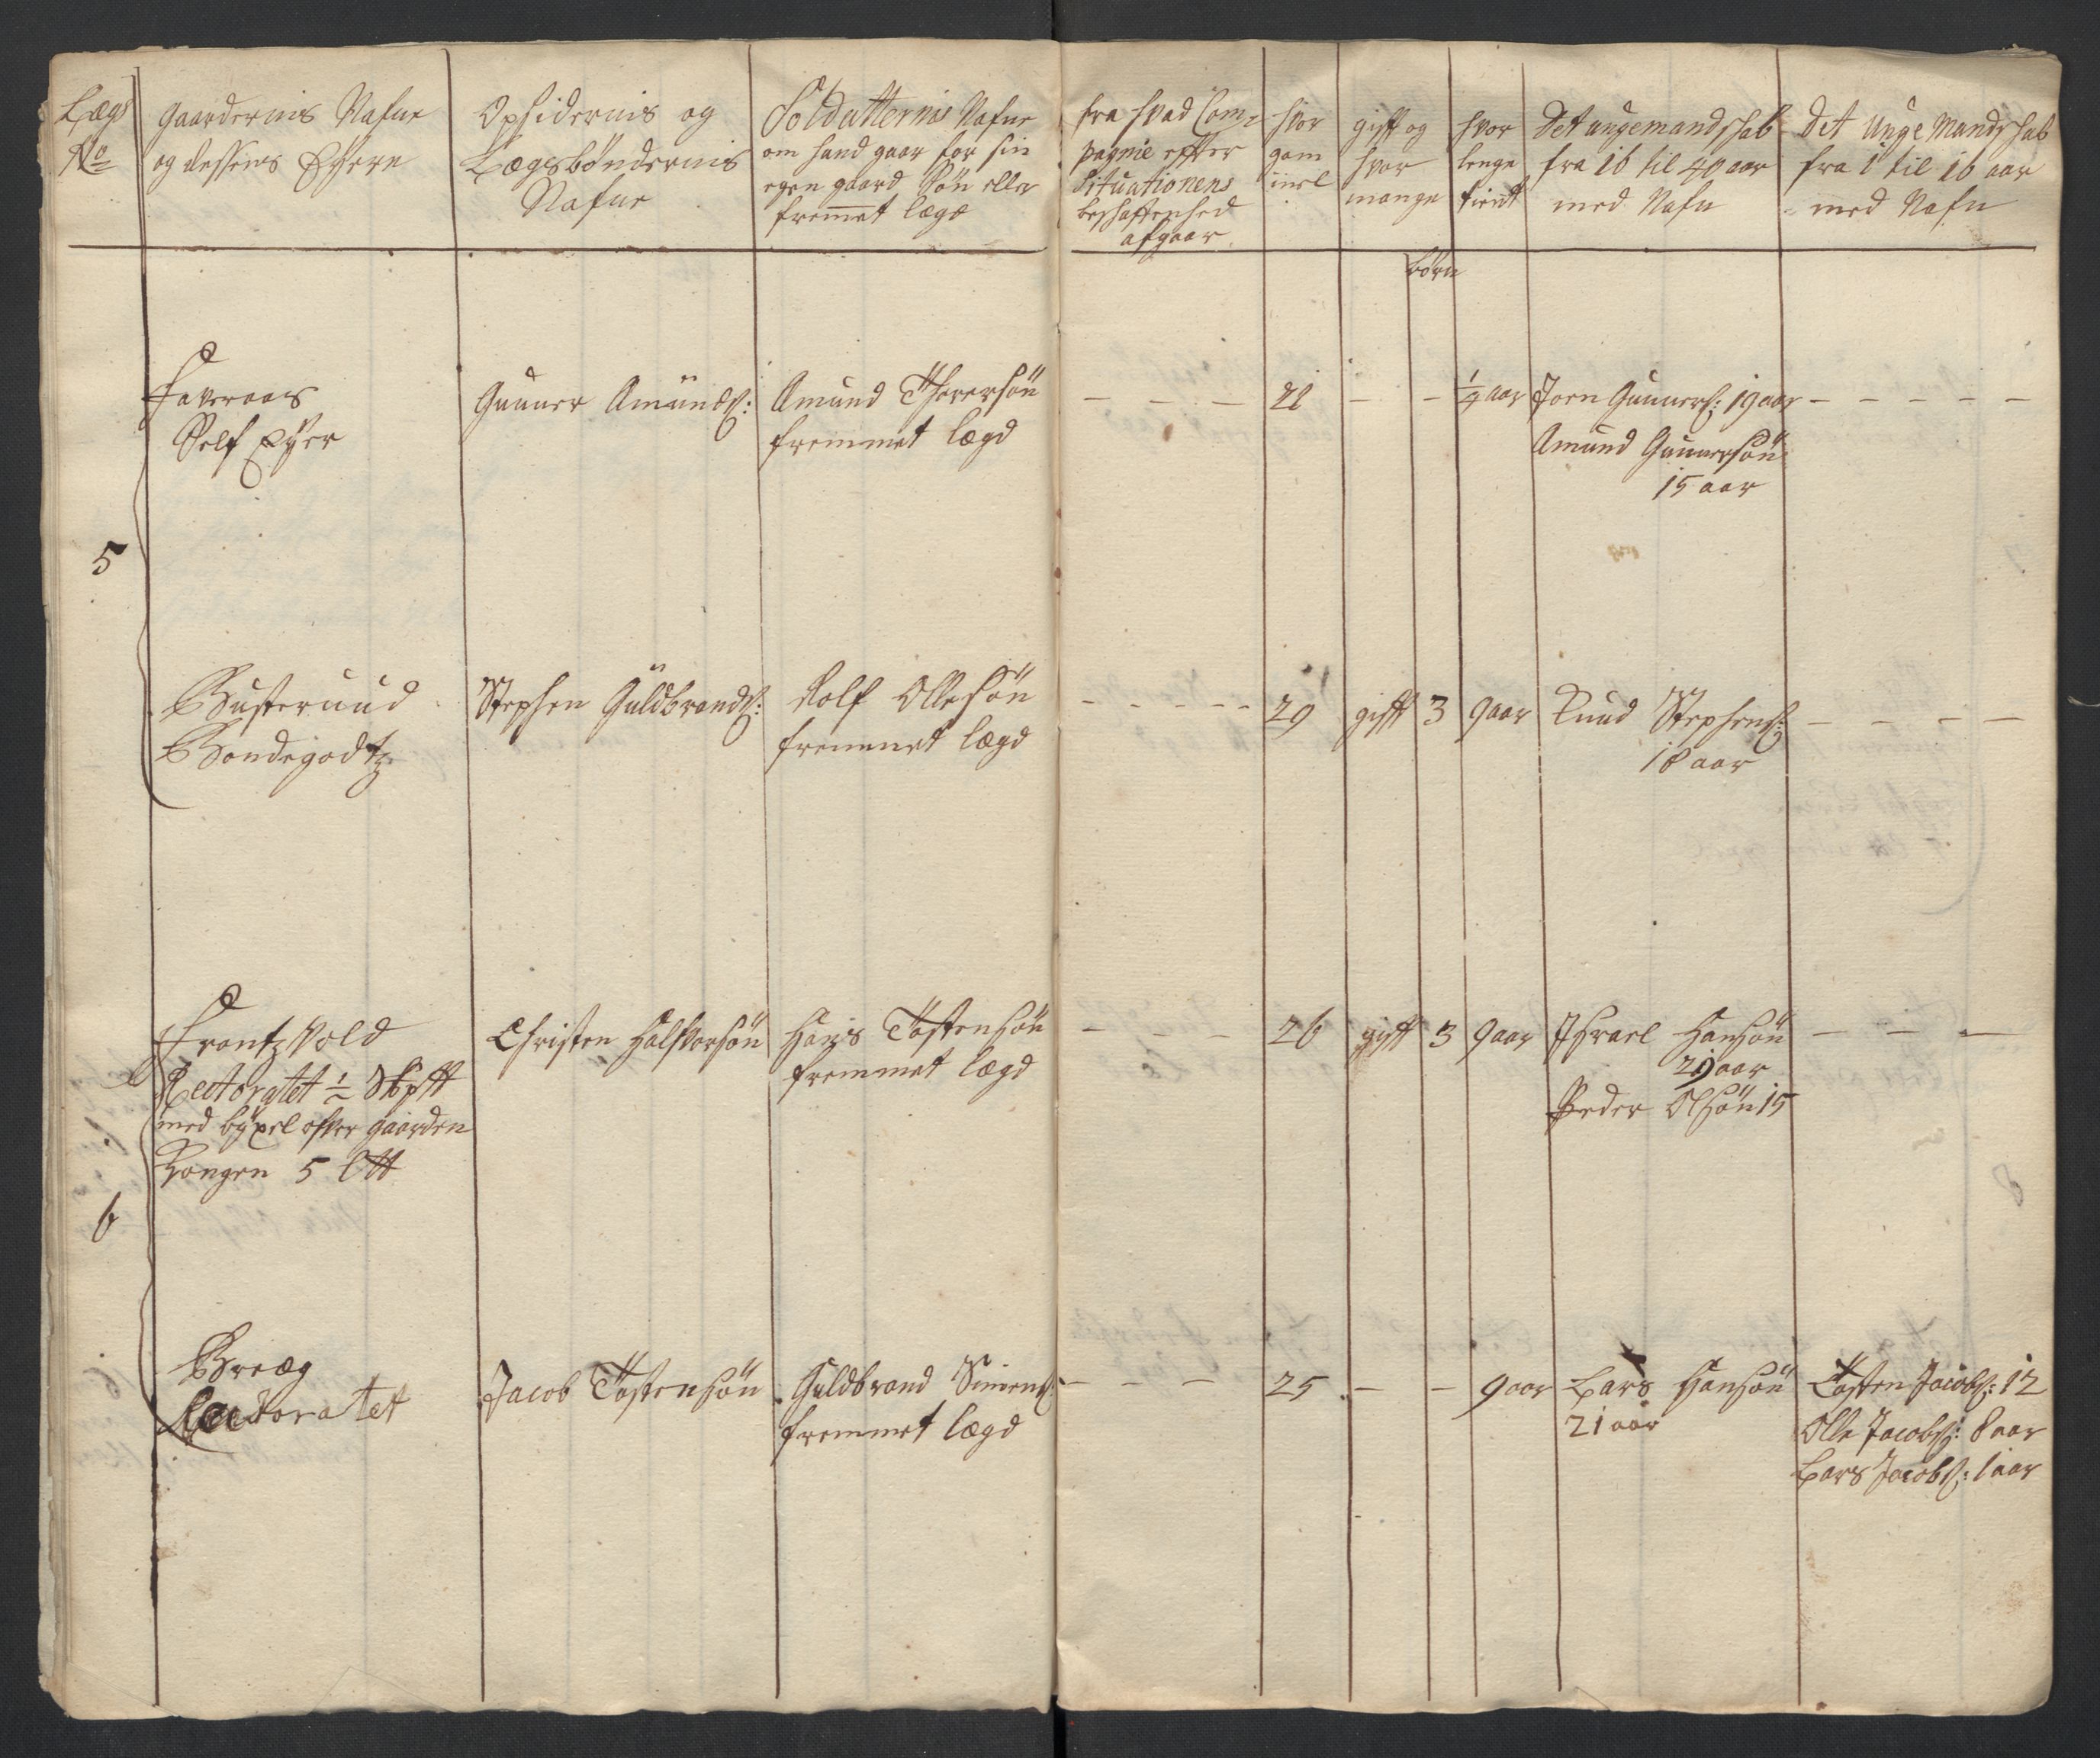 Lægs
No
Gaardernis Nafne
og dessens Eÿere
Opsidernis og
Lægsbøndernis
Nafne
Soldatternis Nafne
om hand gaar for sin
egen gaard, Søn eller
fremmet lægd
fra hvad Com=
pagnie effter
Situationens
beschaffenhed
afgaar
hvor
gam
mel
gift og
hvor
mange
børn
hvor
lenge
tient
Det ungemandschab
fra 16 til 40 aar
med Nafn
Det Unge Mandschab
fra 1 til 16 aar
med Nafn
5
Taveraas
Self Eÿer
Gunner Amunds:
Amund Thorersön
fremmet lægd
— — —
22
— —
1/4 aar
Joen Gunners: 19 aar
Amund Gunnersön
15 aar
— — — — —
Busterund
Bondegodtz
Stephen Guldbrands:
Rolf Ollesön
fremmet lægd
— — — — —
29
gifft
3
9 aar
Knud Stephens:
18 aar
— — — —
6
Frantzvold
Rectoratet 1 Skpff
med bÿxel ofver gaarden
Kongen 5 Lff
Christen Halfvorsön
Hans Töstensön
fremmet lægd
— — —
26
gifft
3
9 aar
Jsrael Hansön
29 aar
Peder Olsön 15
— — —
Bræg
Rectoratet
Jacob Töstensön
Guldbrand Simens:
fremmet lægd
— — —
25
— —
9 aar
Lars Hansön
21 aar
Tosten Jacobs: 12
Olle Jacobs: 8 aar
Lars Jacobs: 1 aar